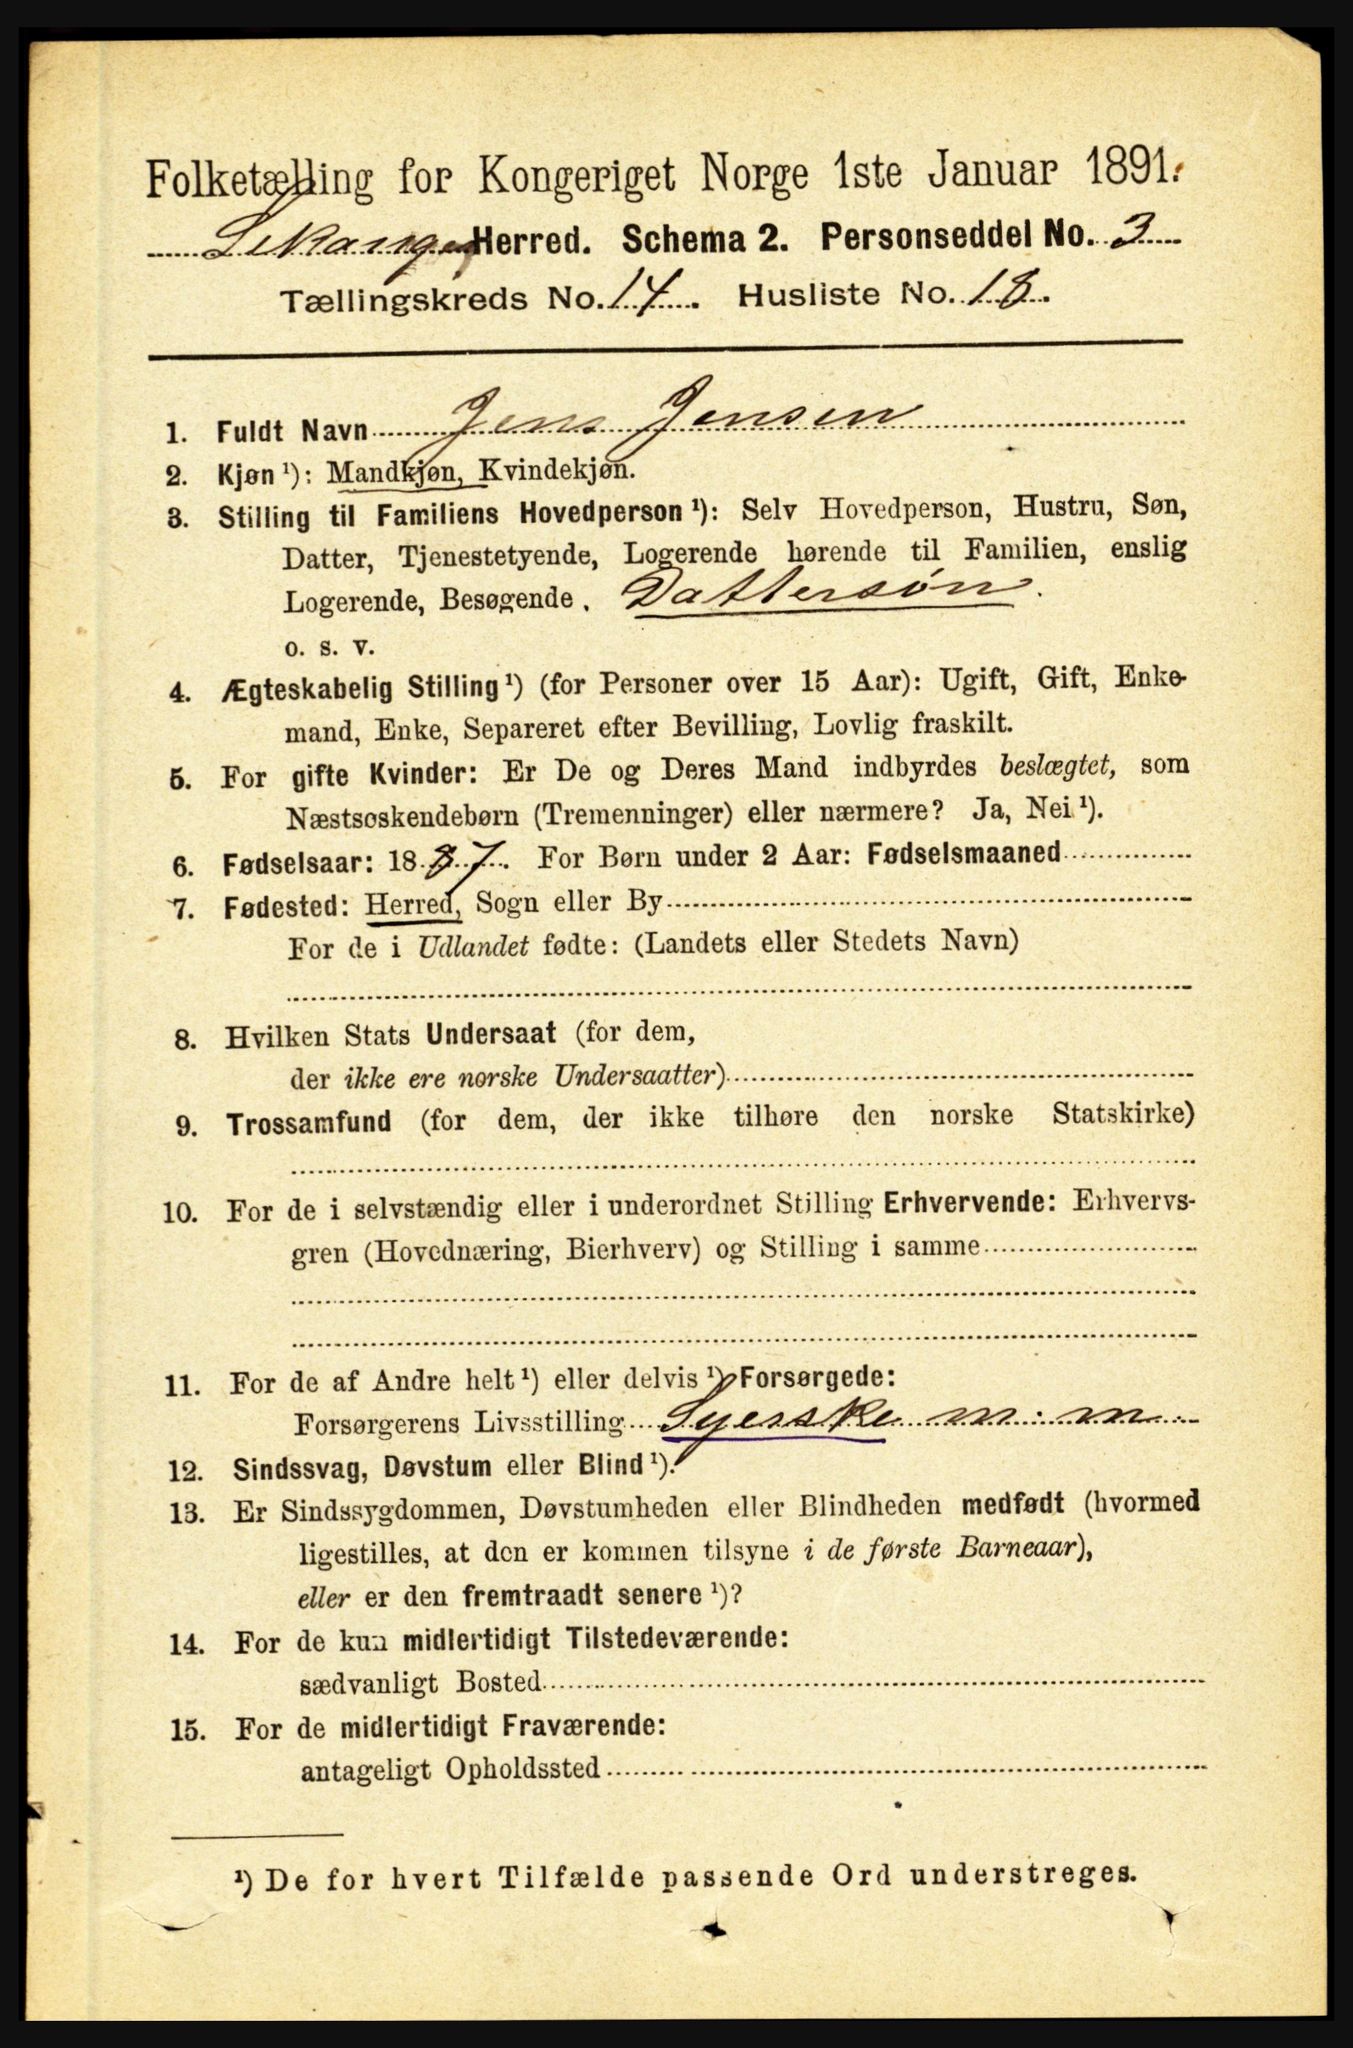 Folketælling for Kongeriget Norge 1ste Januar 1891.
Lekanger Herred. Schema 2. Personseddel No. 3
Tællingskreds No. 14. Husliste No. 18.
1. Fuldt Navn Jens Jensen
2. Kjøn ¹): Mandkjøn, Kvindekjøn.
3. Stilling til Familiens Hovedperson ¹): Selv Hovedperson, Hustru, Søn,
Datter, Tjenestetyende, Logerende hørende til Familien, enslig
Logerende, Besøgende. Dattersøn.
o. s. v.
4. Ægteskabelig Stilling ¹) (for Personer over 15 Aar): Ugift, Gift, Enke-
mand, Enke, Separeret efter Bevilling, Lovlig fraskilt.
5. For gifte Kvinder: Er De og Deres Mand indbyrdes beslægtet, som
Næstsøskendebørn (Tremenninger) eller nærmere? Ja, Nei ¹).
6. Fødselsaar: 1887. For Børn under 2 Aar: Fødselsmaaned
7. Fødested: Herred, Sogn eller By
For de i Udlandet fødte: (Landets eller Stedets Navn)
8. Hvilken Stats Undersaat (for dem,
der ikke ere norske Undersaatter)
9. Trossamfund (for dem, der ikke tilhøre den norske Statskirke)
10. For de i selvstændig eller i underordnet Stilling Erhvervende: Erhvervs-
gren (Hovednæring, Bierhverv) og Stilling i samme
11. For de af Andre helt ¹) eller delvis ¹) Forsørgede:
Forsørgerens Livsstilling Syerske m. m.
12. Sindssvag, Døvstum eller Blind ¹).
13. Er Sindssygdommen, Døvstumheden eller Blindheden medfødt (hvormed
ligestilles, at den er kommen tilsyne i de første Barneaar),
eller er den fremtraadt senere ¹)?
14. For de kun midlertidigt Tilstedeværende:
sædvanligt Bosted
15. For de midlertidigt Fraværende:
antageligt Opholdssted
¹) De for hvert Tilfælde passende Ord understreges.